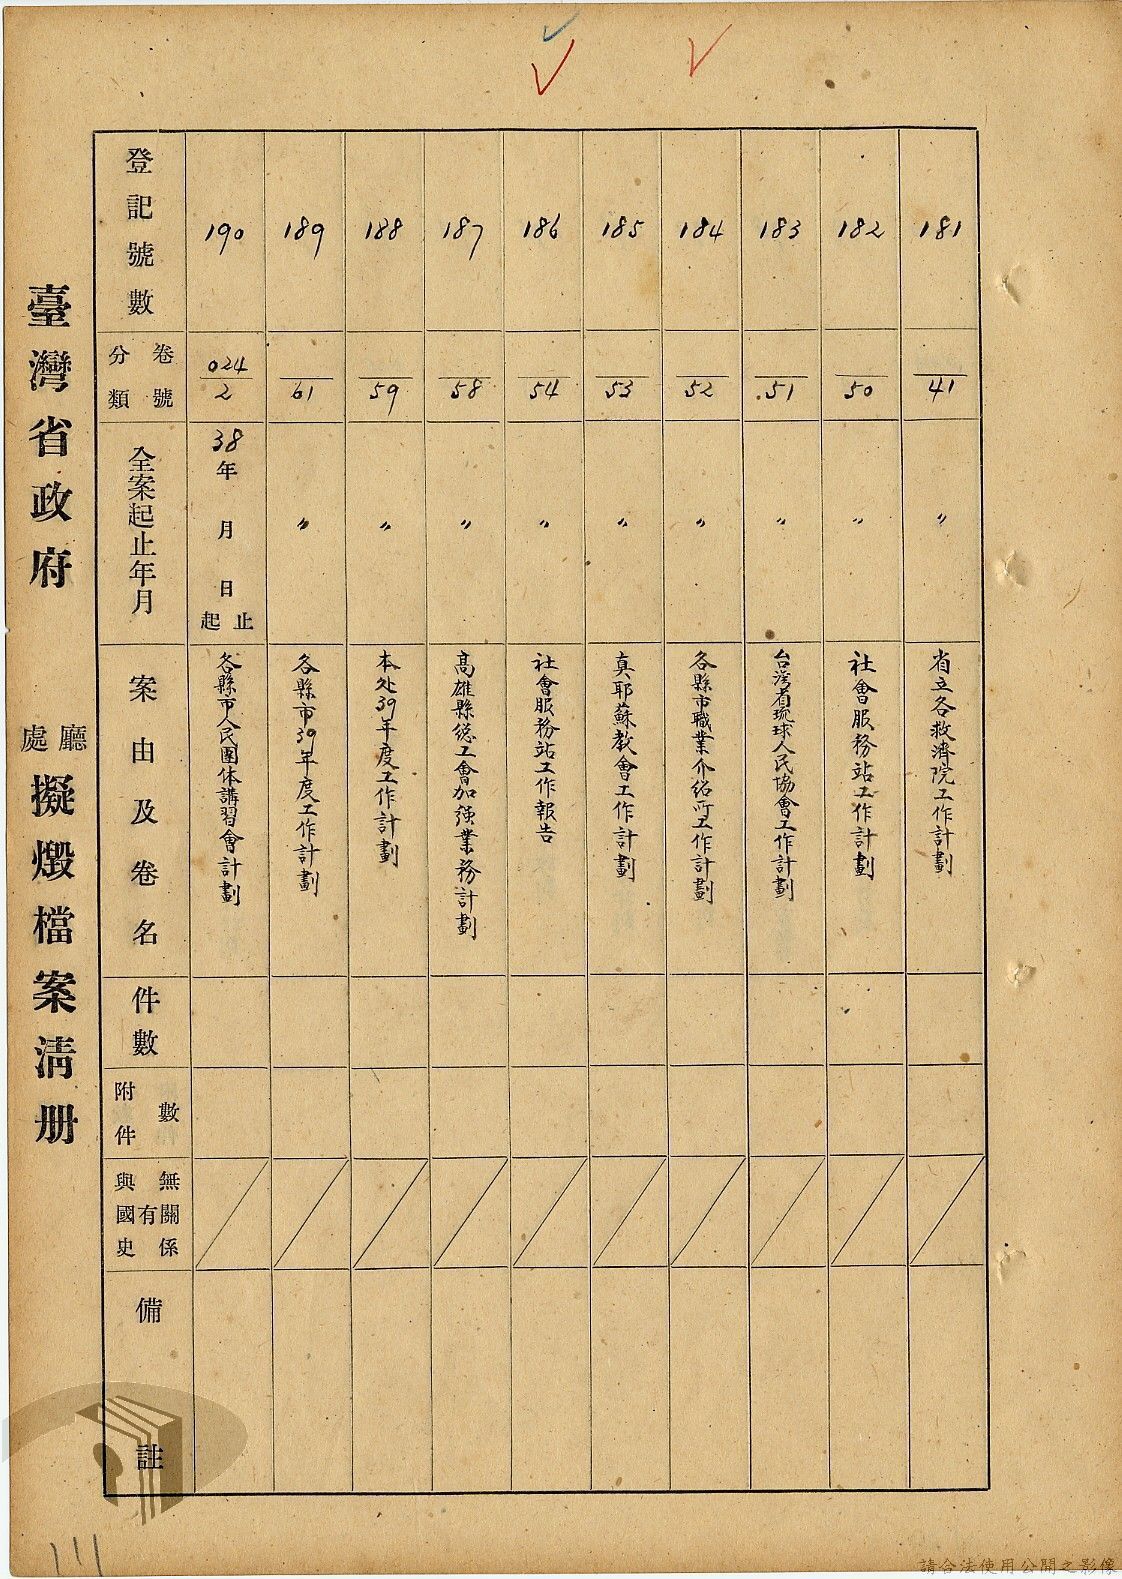 臺灣省政府 廳處 擬燬檔案淸册
登記號數 190 189 188 187 186 185 184 183 182 181
分類卷號 024/2 61 59 58 54 53 52 51 50 41
全案起止年月 38年 月 日起止 〃 〃 〃 〃 〃 〃 〃 〃 〃
案由及卷名
各縣市人民團体講習會計劃
各縣市39年度工作計劃
本处39年度工作計劃
高雄縣總工會加强業務計劃
社會服務站工作報告
真耶蘇教會工作計劃
各縣市職業介紹所工作計劃
台灣省琉球人民協會工作計劃
社會服務站工作計劃
省立各救濟院工作計劃
件數
附件數
與國史有無關係
備註
111
請合法使用公開之影像